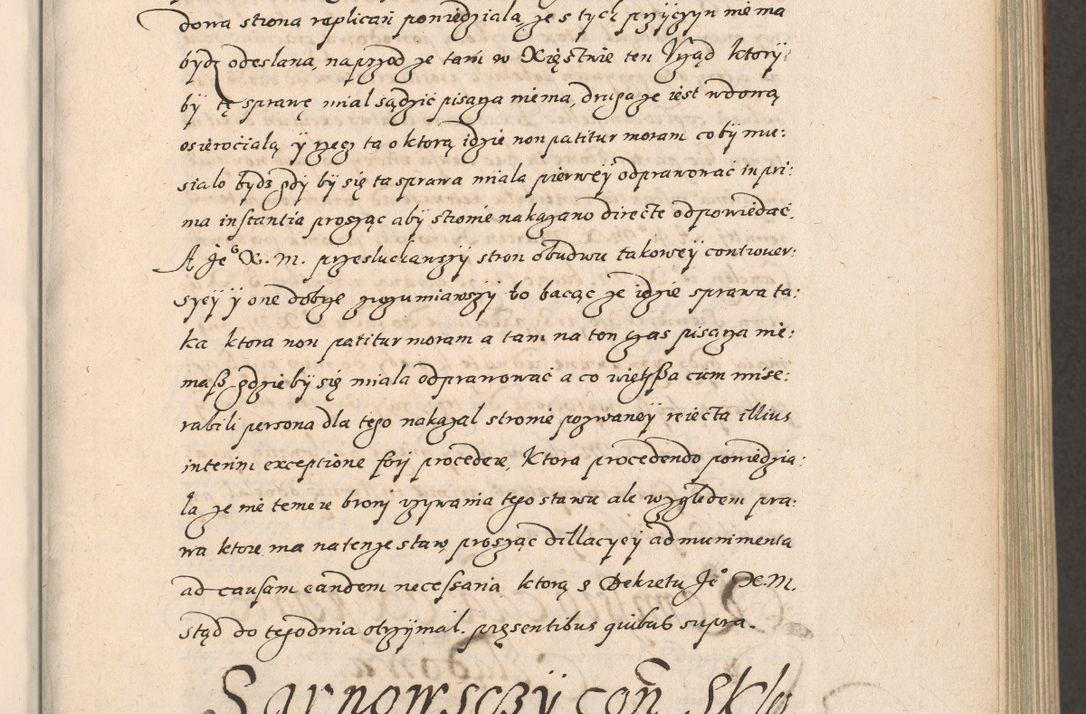 dowa strona replicań poniedziala ze s tych przyczyn nie ma
bydz odeslana, naprzod ze tam w Xięstwie ten Vrząd ktory
by tę sprawę mial sądzić pisarza niema, druga ze iest wdową
osierociałą y rzecz ta o ktorą idzie non patitur moram coby mu:
sialo bydz gdy by się ta sprawa miala pierwey odprawować in pri:
ma instantia prosząc aby stronie nakazano directe odpowiedać.
A Jeº X. M. przesluchawszy stron obudwu takowey controuer:
syey y one dobrze zrozumiawszy to bacąc ze idzie sprawa ta:
ka ktora non patitur moram a tam na ten czas pisarza nie:
masz gdzie by się miala odprawować a co większa cum mise:
rabili persona dla tego nakazal stronie pozwaney reiecta illius
interim exceptione forj procedere, Ktora procedendo powiedzia:
la ze nie temere bronj vzywania tego stawu ale względem pra:
wa ktore ma na tenze staw, prosząc dillacyey ad munimenta
ad causam eandem necessaria ktorą z Dekretu Jeº X. M.
stąd do tegodnia otrzymal. pręsentibus quibus supra.
Sarnowsczÿ coñ Skło